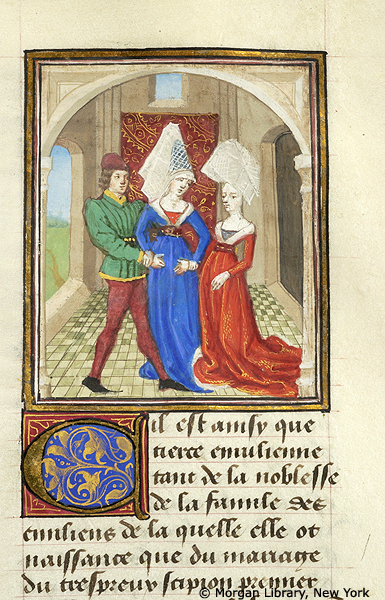 Qil est ainsy que
tierce emulienne
tant de la noblesse
de la famile des
emiliens de la quelle elle ot
naissance que du mariage
du trespreux scipion premier
© Morgan Library, New York